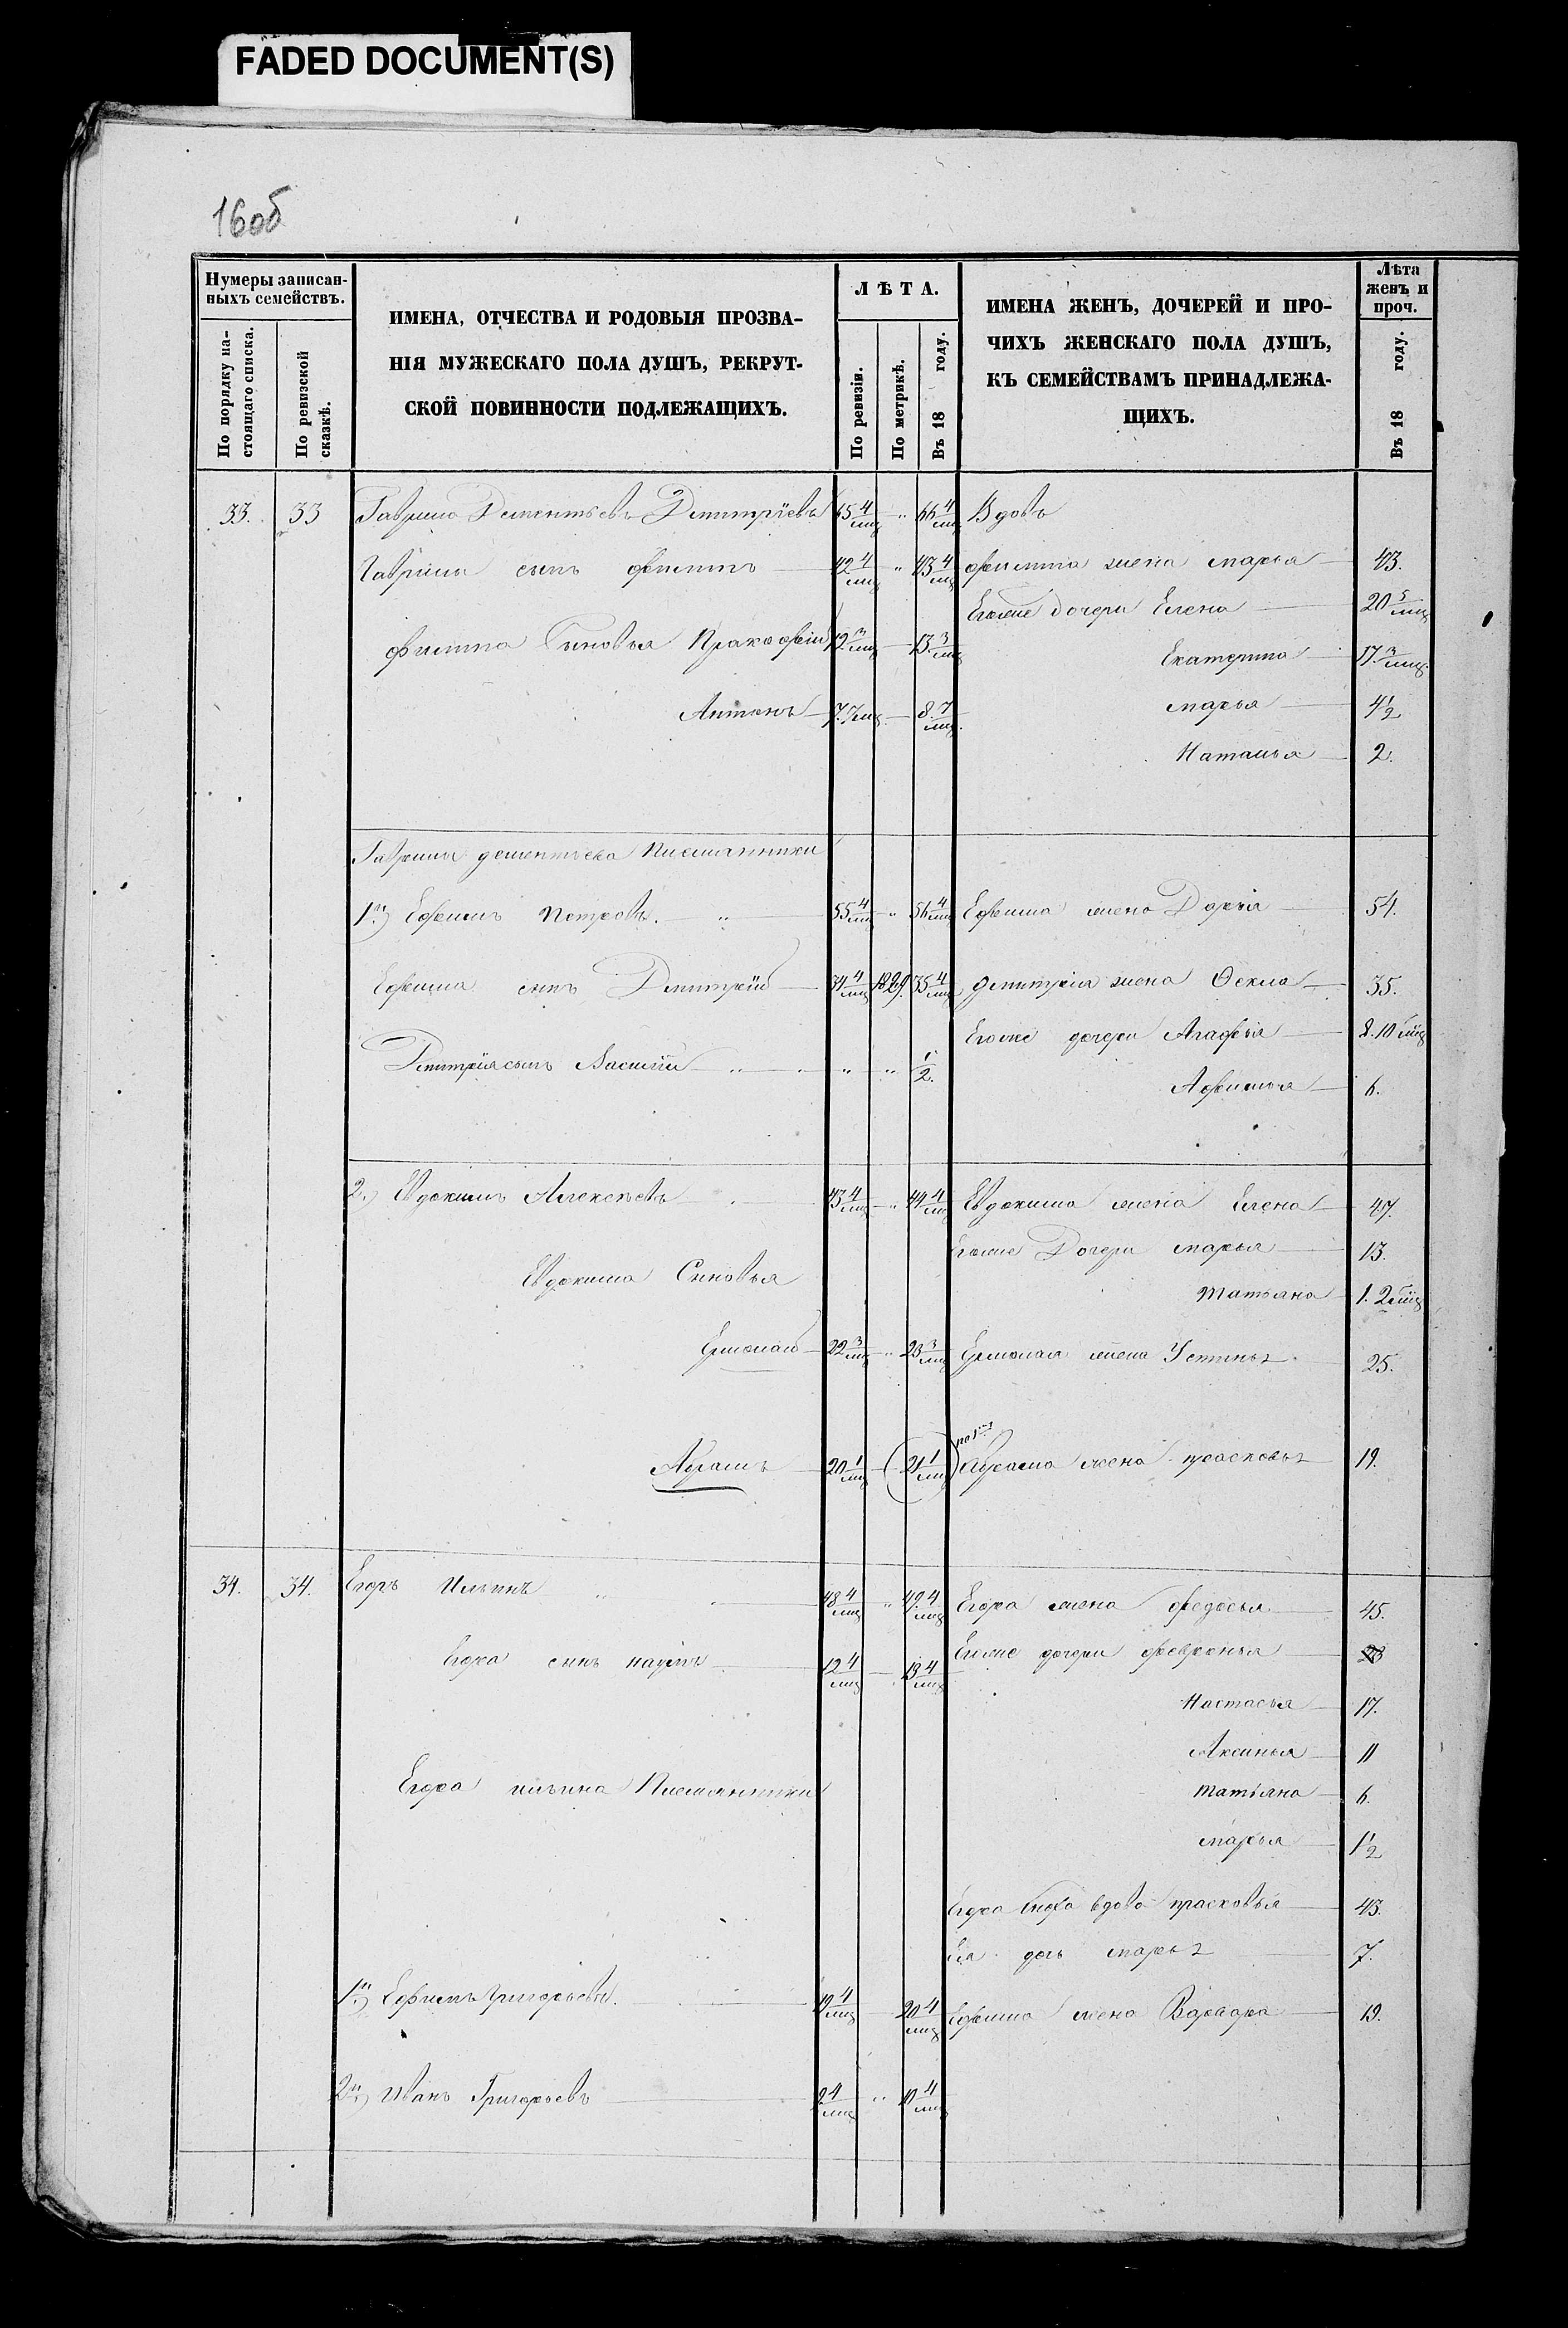 FADED DOCUMENT(S)
16об
Нумеры записан-
ныхъ семействъ.
По порядку на-
стоящаго списка.
По ревизской
сказкѣ.
ИМЕНА, ОТЧЕСТВА И РОДОВЫЯ ПРОЗВА-
НІЯ МУЖЕСКАГО ПОЛА ДУШЪ, РЕКРУТ-
СКОЙ ПОВИННОСТИ ПОДЛЕЖАЩИХЪ.
ЛѢТА.
По ревизіи.
По метрикѣ.
Въ 18 году.
ИМЕНА ЖЕНЪ, ДОЧЕРЕЙ И ПРО-
ЧИХЪ ЖЕНСКАГО ПОЛА ДУШЪ,
КЪ СЕМЕЙСТВАМЪ ПРИНАДЛЕЖА-
ЩИХЪ.
Лѣта
женъ и
проч.
Въ 18 году.
33. 33 Гаврило Дементьевъ Дмитріевъ 65 4/мц " 66 4/мц Вдовъ
Гаврилы сынъ филипъ 42 4/мц " 43 4/мц филипа жена марья 43.
Егоже дочери Елена 20 5/мц
филипа Сыновья Пракофій 12 3/мц 13. 3/мц
Екатерина 17. 3/мц.
Антонъ 7. 7мц 8. 7/мц.
марья 4 1/2
Наталья 2.
Гаврилы дементьева Племянники
1й) Ефимъ Петровъ. " 55 4/мц " 56 4/мц Ефима жена Дарья 54.
Ефима сынъ Дмитрій 34 4/мц 1829. 35 4/мц дмитрія жена Ѳекла 35.
Егоже дочери Агафья 8. 10 мц
Дмитрія сынъ Василій " " " 1/2.
Афимья 6.
2.) Евдокимъ Алексѣевъ 43 4/мц " 44 4/мц Евдокима жена Елена 47.
Егоже Дочери марья 13.
Евдокима Сыновья
Татьяна 1. 2 мц
Ермолай 22 3/мц " 23 3/мц Ермолая жена Устинья 25.
Абрамъ 20 1/мц 21 1/мц Абрама жена прасковья 19.
34. 34. Егоръ Ильинъ " 48 4/мц " 49. 4/мц Егора жена федосья 45.
Егоже дочери февронья 23
Егора сынъ наумъ 12 4/мц 13 4/мц
Настасья 17.
Аксинья 11
Егора ильина Племянники
Татьяна 6.
марья 1 1/2
Егора вдова прасковья 43.
Ея дочь марья 7.
1й) Ефимъ Григорьевъ. 19 4/мц 20 4/мц Ефима жена Варвара 19.
2й) Иванъ Григорьевъ 9 4/мц " 10 4/мц